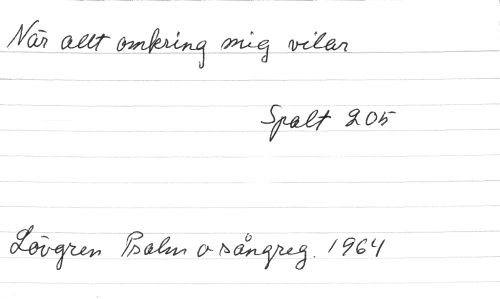 När allt omkring mig vilar
Spalt 205
Lövgren Psalm o sångreg. 1964